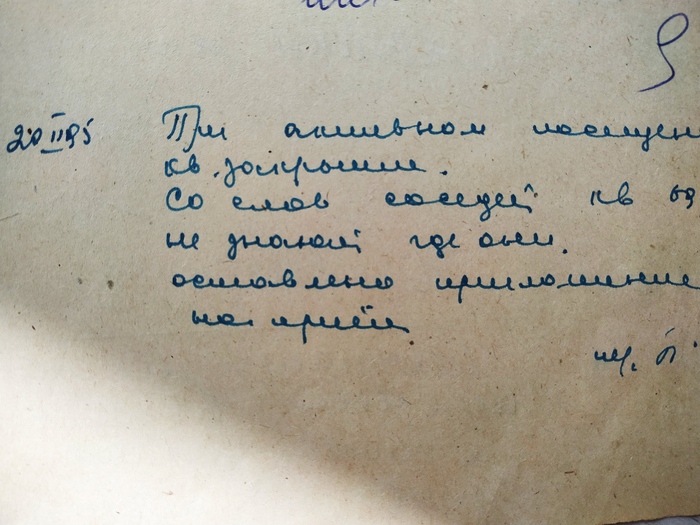 20 II 95 При активном посещен
кв. закрыта.
Со слов соседей кв 69
не знают где они.
оставлено приглашение
на приём